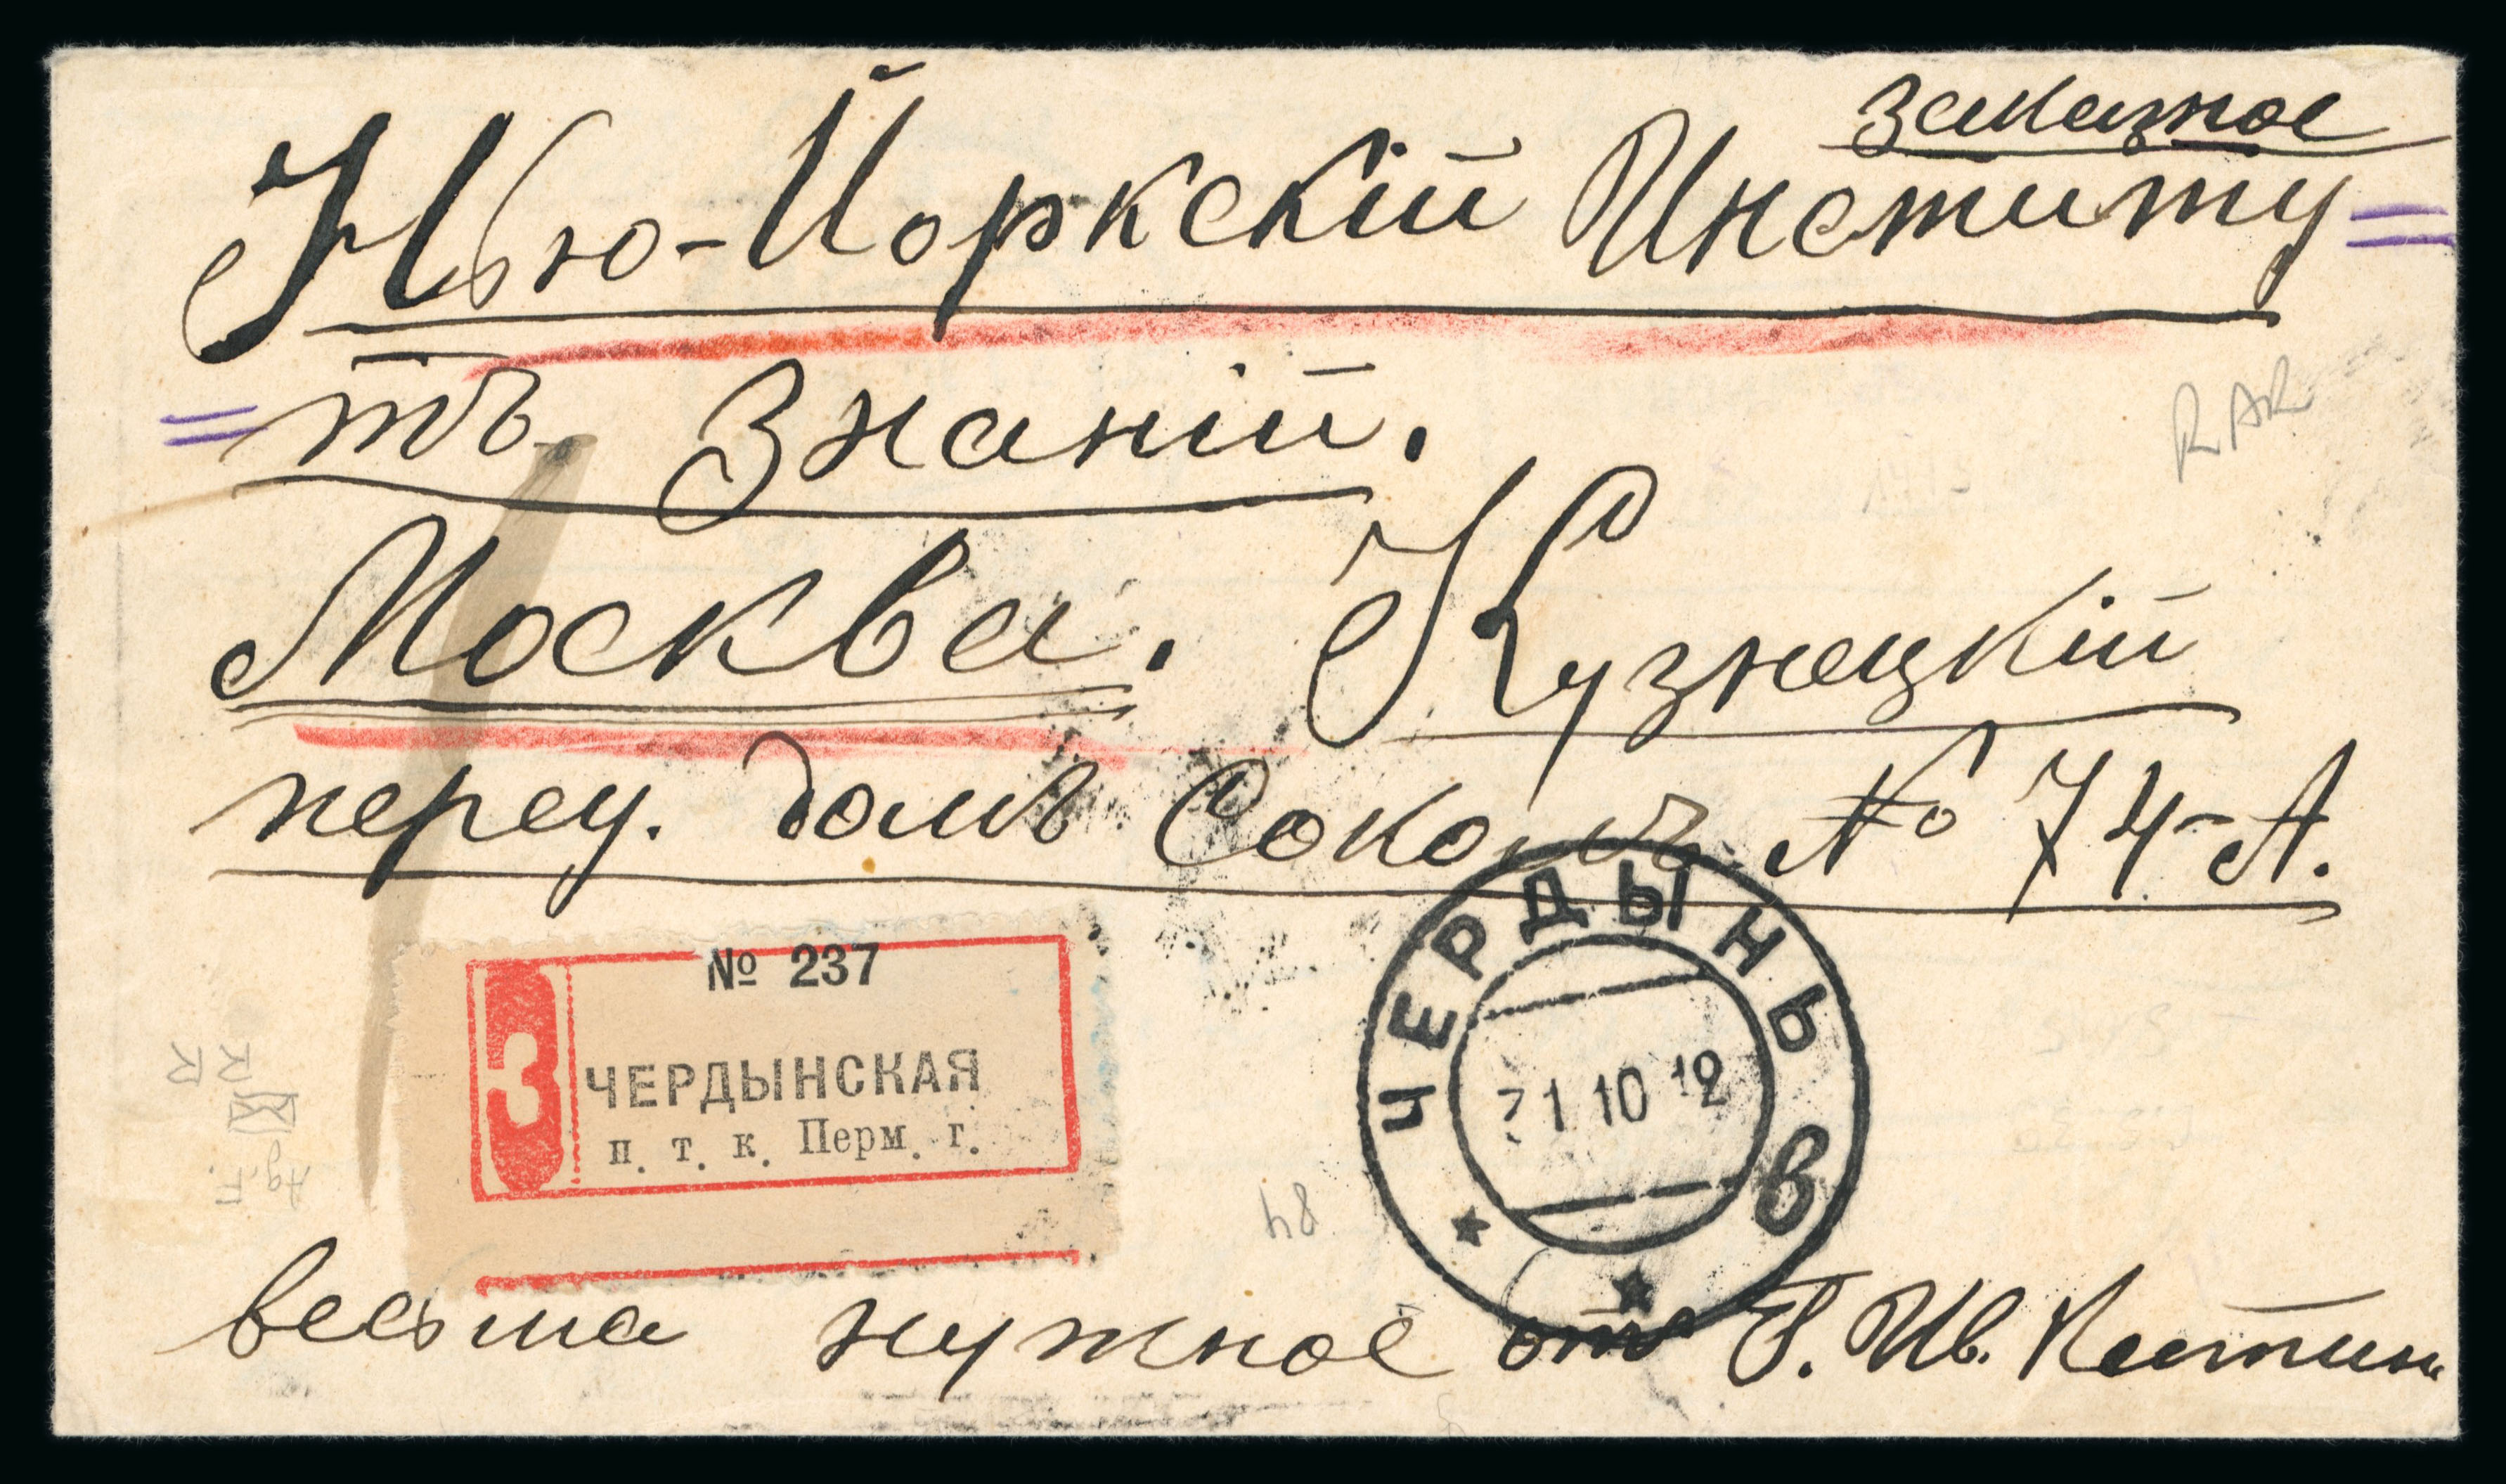 заказное
Нью-Йоркскій Институ=
=тъ Знаній.
Москва. Кузнецкій
переу. домъ Соколъ № 74-А.
№ 237
З
ЧЕРДЫНСКАЯ
п. т. к. Перм. г.
ЧЕРДЫНЬ
31 10 12
в
84
RAR
весьма нужное отъ Г. Ив.